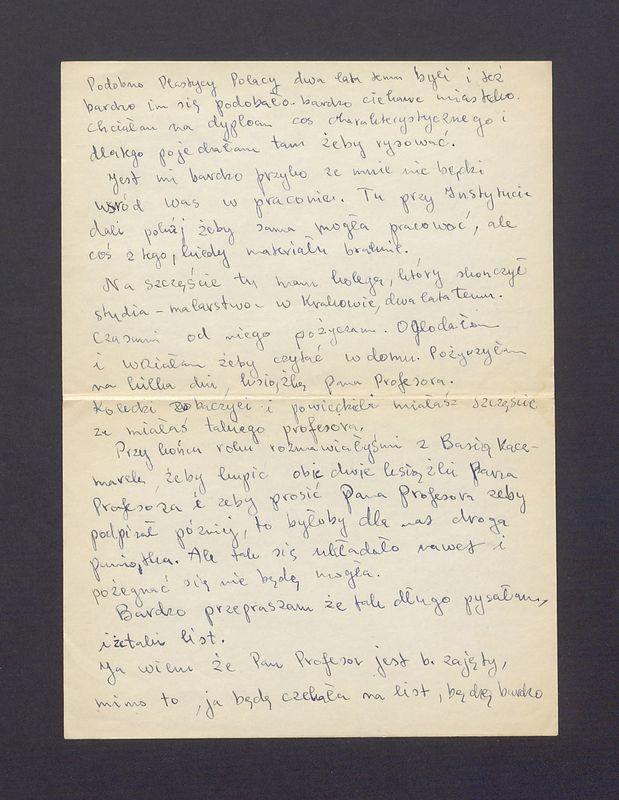 Podobno Plastycy Polacy dwa lata temu byli i też
bardzo im się podobało. bardzo ciekawe miasteczko.
chciałam na dyplom coś charakterystycznego i
dlatego pojechałam tam żeby rysować.
Jest mi bardzo przykro że mnie nie będzi
wśród was w pracowni. Tu przy Instytucie
dali pokój żeby sama mogła pracować, ale
coś z tego, kiedy materiału braknie.
Na szczęście tu mam kolegę, który skończył
studia – malarstwo – w Krakowie, dwa lata temu.
Czasami od niego pożyczam. Oglądałam
i wziałam żeby czytać w domu. Pożyczyłam
na kilka dni, książkę Pana Profesora.
Koledzi zobaczyli i powiedzieli miałaś szczęście
że miałaś takiego profesora.
Przy końcu roku rozmawiałyśmi z Basią Kacz-
marek, żeby kupić obje dwie książki Pana
Profesora i żeby prosić Pana Profesora żeby
podpisał później, to byłoby dla nas droga
pamiątka. Ale tak się układało nawet i
pożegnać się nie będę mogła.
Bardzo przepraszam że tak długo pysałam,
i żetaki list.
Ja wiem że Pan Profesor jest b. zajęty,
mimo to, ja będę czekała na list, będzię bardzo